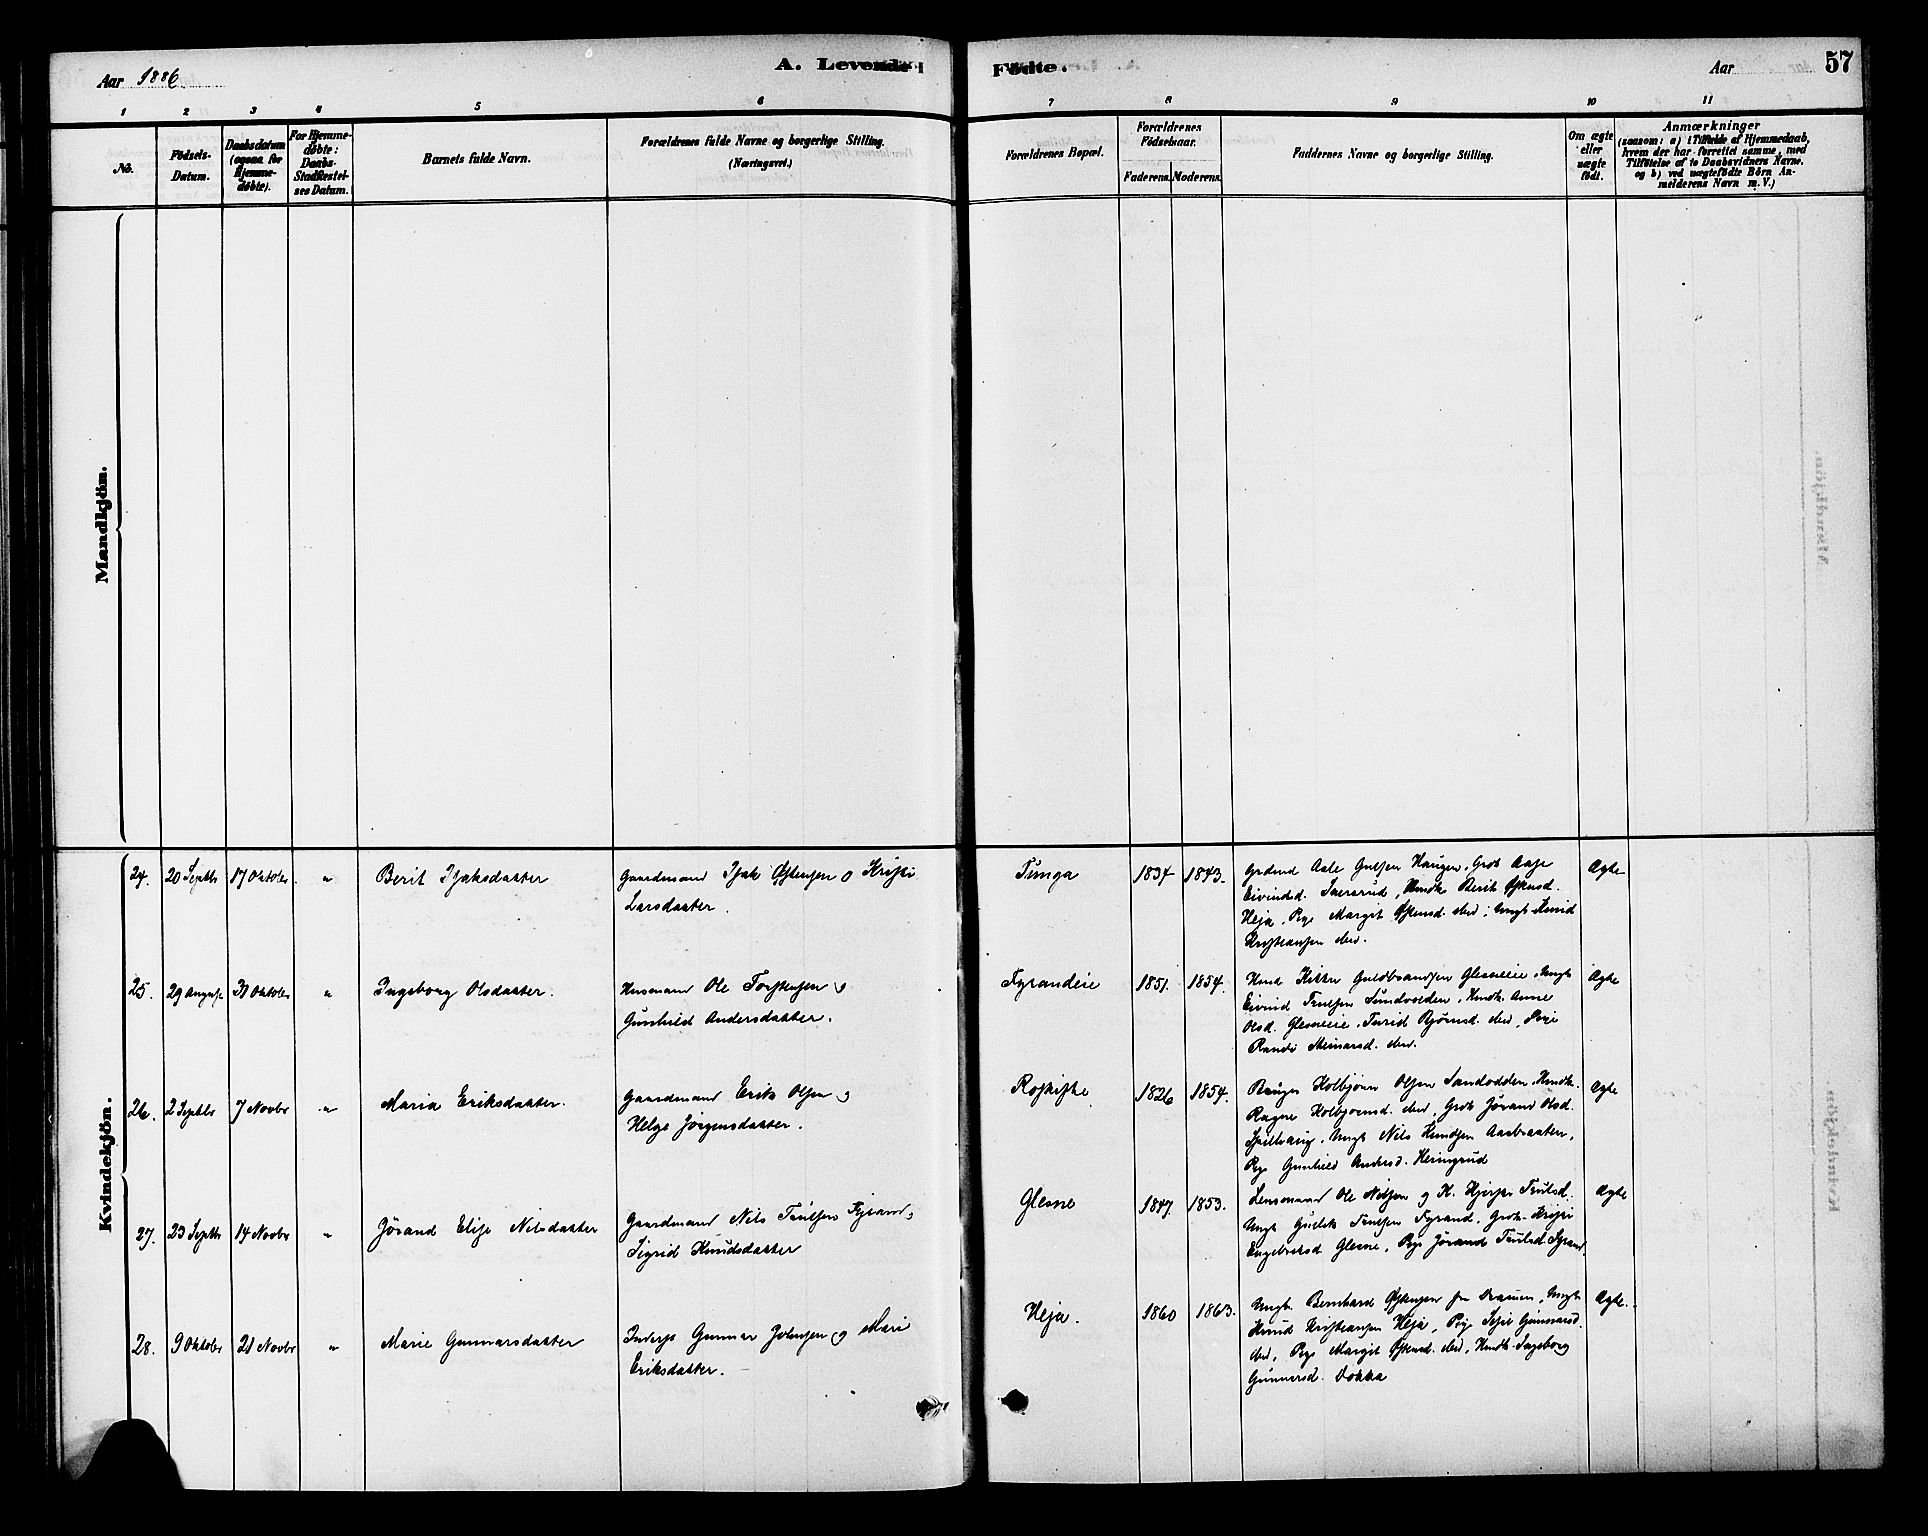 Aar 1886.
A. Levende
Födte.
Aar
57
1 2 3 4 5 6 7 8 9 10 11
No.
Födsels-
Datum.
Daabsdatum
(ogsaa for
Hjemme-
döbte).
For Hjemme-
döbte:
Daabs-
Stadfæstel-
ses Datum.
Barnets fulde Navn.
Forældrenes fulde Navne og borgerlige Stilling.
(Næringsvei.)
Forældrenes Bopæl.
Forældrenes
Födselsaar.
Faderens. Moderens.
Faddernes Navne og borgerlige Stilling.
Om ægte
eller
uægte
födt.
Anmærkninger
(saasom: a) i Tilfælde af Hjemmedaab,
hvem der har forrettet samme, med
Tilföielse af to Daabsvidners Navne.
og b) ved uægtefödte Börn An-
melderens Navn m. V.)
Mandkjön.
Kvindekjön.
24. 20 Septbr 17 Oktober " Berit Isaksdatter
Gaardmand Isak Østensen o Kristi
Larsdatter.
Tunga 1834 1843.
Eivindsd. Berit Østensd.
Heja, Pige Margit Østensd. ibid, Ungk. Knud
Kristiansen ibid.
Ægte
25. 29 August 31 Oktober " Ingeborg Olsdatter.
Husmand Ole Torstensen og
Gunhild Andersdatter.
Fyrandeie 1851. 1854.
Husm Guldbrandsen Glesneeie, Ungk
Eivind Trulsen Sundvolden, Husmk. Anne
Olsd. Glesneeie, Turid Bjørnsd. ibid, Pige
Randi ibid.
Ægte
26. 2 Septbr 7 Novbr " Maria Eriksdatter.
Gaardmand Erik Olsen og
Helge Jörgensdatter.
1826 1854.
Kolbjörn Olsen Sandodden, Husmk.
Ragne Kolbjørnsd. ibid, Grdk Jørand Olsd.
Ungk Nils Knudsen Aasbraaten,
Pige Gunhild Andersd. Heimgrud
Ægte
27. 23 Septbr 14 Novbr " Jörand Elise Nilsdatter
Gaardmand Nils Trulsen Fyrand og
Sigrid Knudsdatter
Glesne 1847. 1853.
Lensmand Ole Nilsen og K. Trulsd.
Ungk Trulsen Fyrand, Grdk. Kristi
Engebretsd Glesne, Pige Jörand Trulsd Fyrand.
Ægte
28. 9 Oktober 21 Novbr " Marie Gunnarsdatter
Inderst Gunnar Johnsen og Mari
Eriksdatter.
Heja. 1860 1863.
Ungk. Bernhard Østensen fra Drammen, Ungk
Knud Kristiansen Heja, Pige Gunnarsd.
ibid, Pige Margit Østensd. ibid, Husmk. Ingeborg
Gunnarsd. Dokka
Ægte.